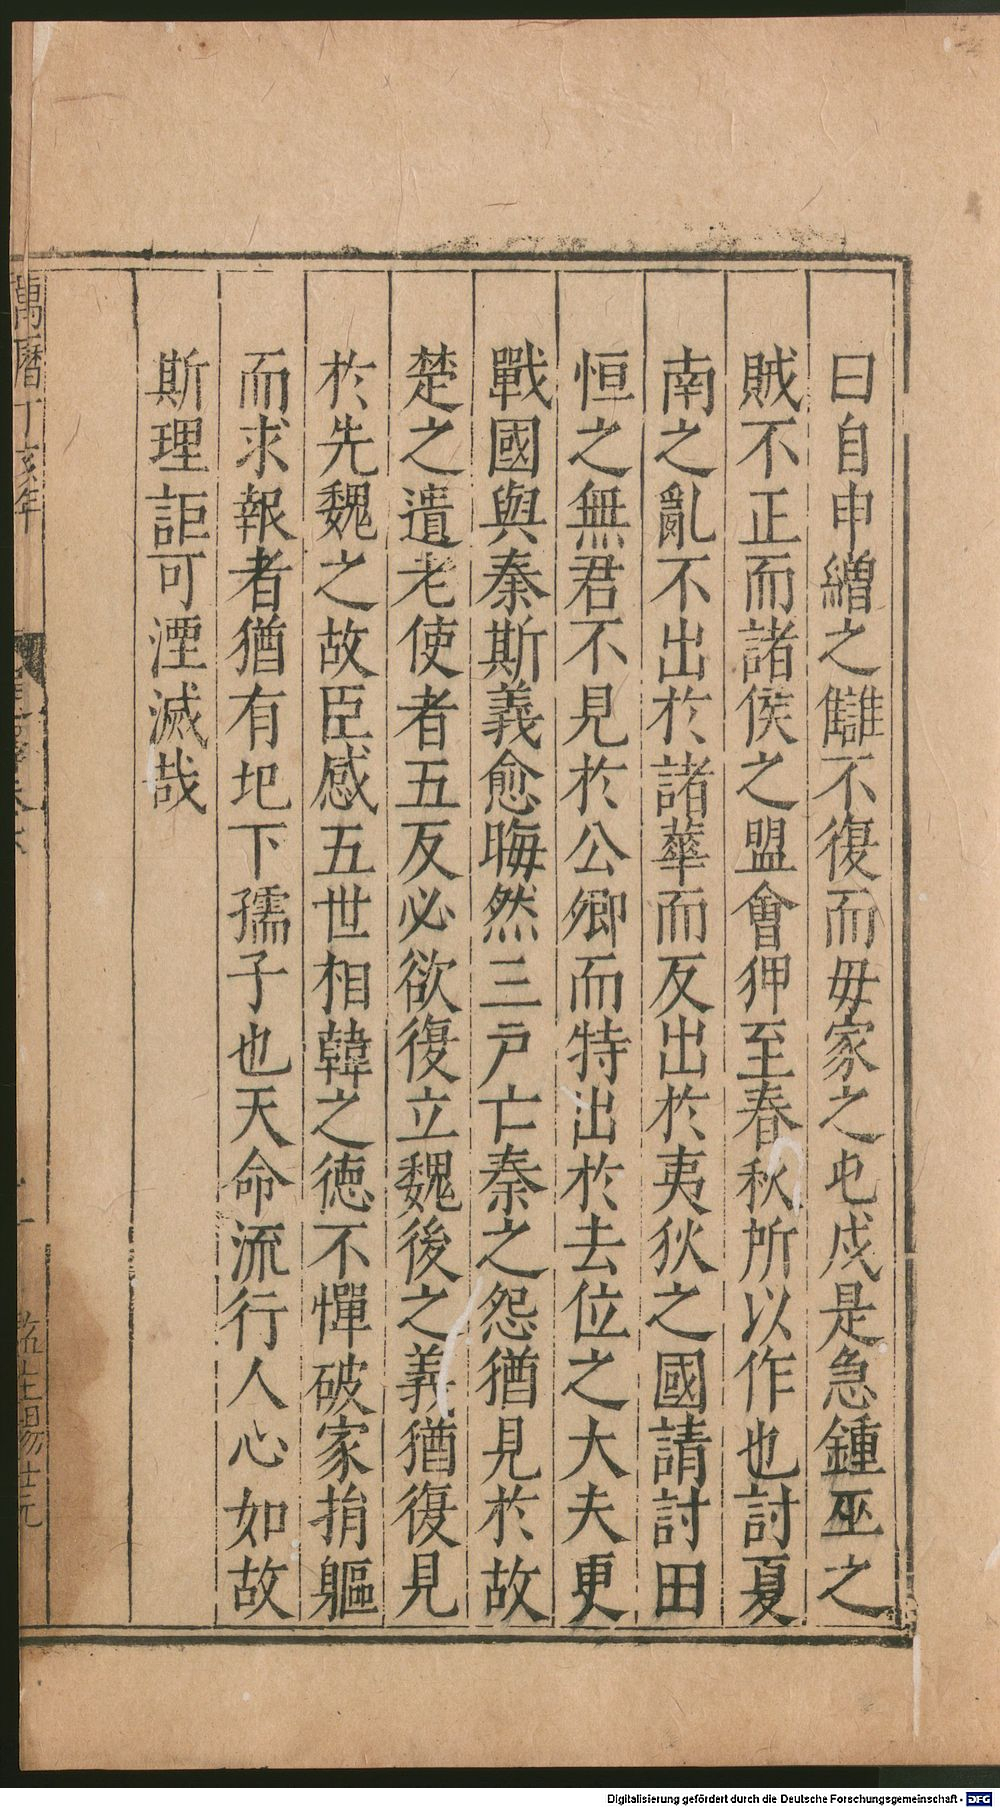 曰自申繒之讎不復而毋家之屯戍是急鍾巫之
賊不正而諸侯之盟會狎至春秋所以作也討夏
南之亂不出於諸華而反出於夷狄之國請討田
恒之無君不見於公卿而特出於去位之大夫更
戰國與秦斯義愈晦然三戸亡秦之怨猶見於故
楚之遺老使者五反必欲復立魏後之義猶復見
於先魏之故臣感五世相韓之德不憚破家捐軀
而求報者猶有圯下孺子也天命流行人心如故
斯理詎可湮滅哉
萬曆丁亥年
Digitalisierung gefördert durch die Deutsche Forschungsgemeinschaft - DFG